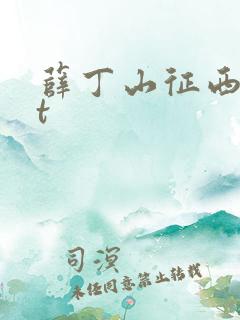 薛丁山征西
t
司溟
未经同意禁止转载